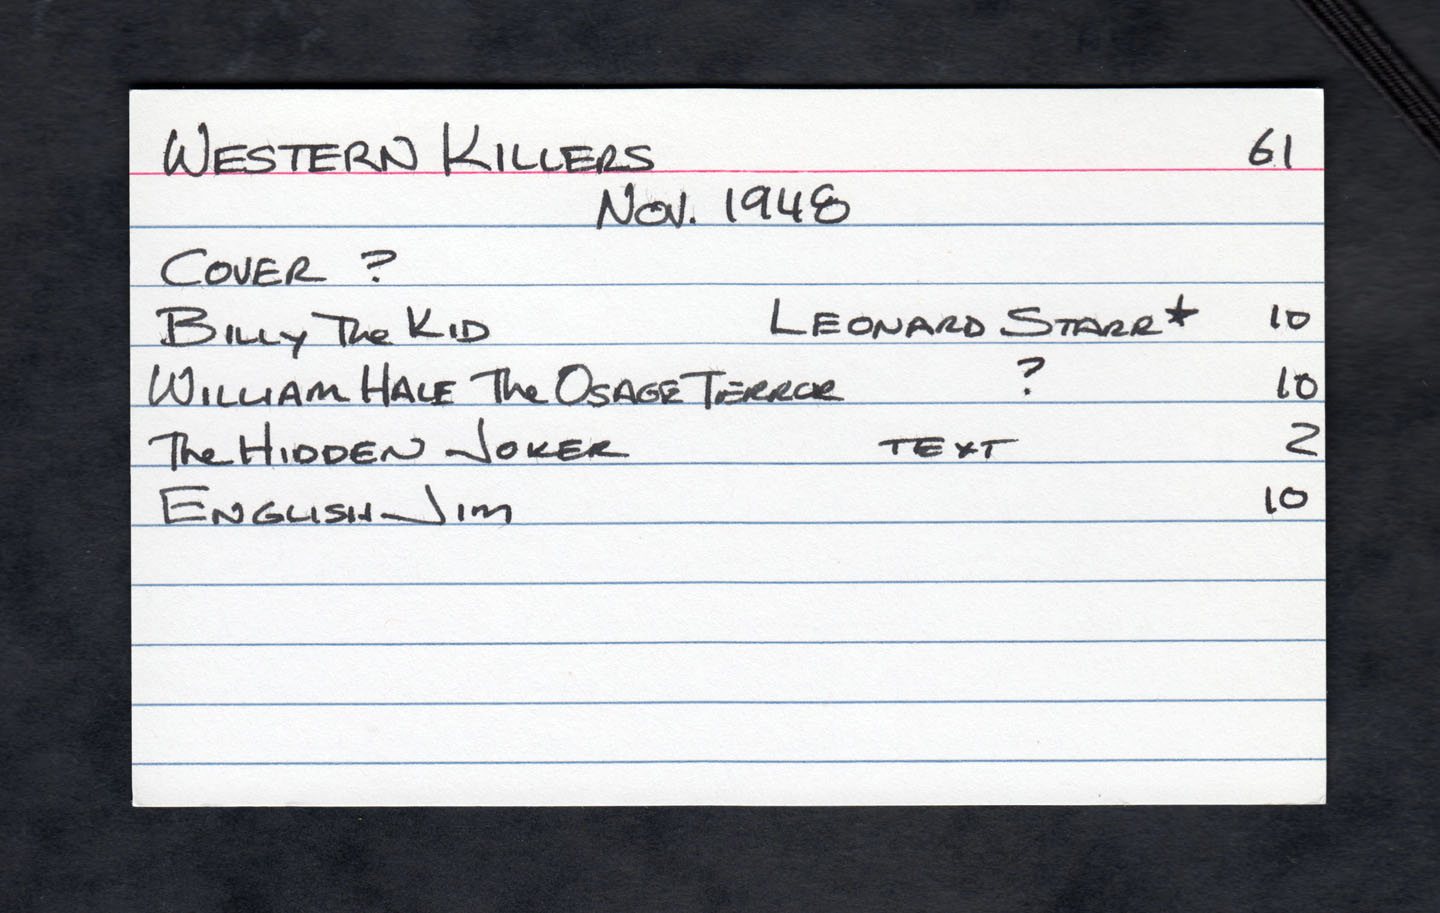 WESTERN KILLERS 61
NOV. 1948
COVER ?
BILLY The KID LEONARD STARR★ 10
WILLIAM HALE The OSAGE TERROR ? 10
The HIDDEN JOKER TEXT 2
ENGLISH JIM 10